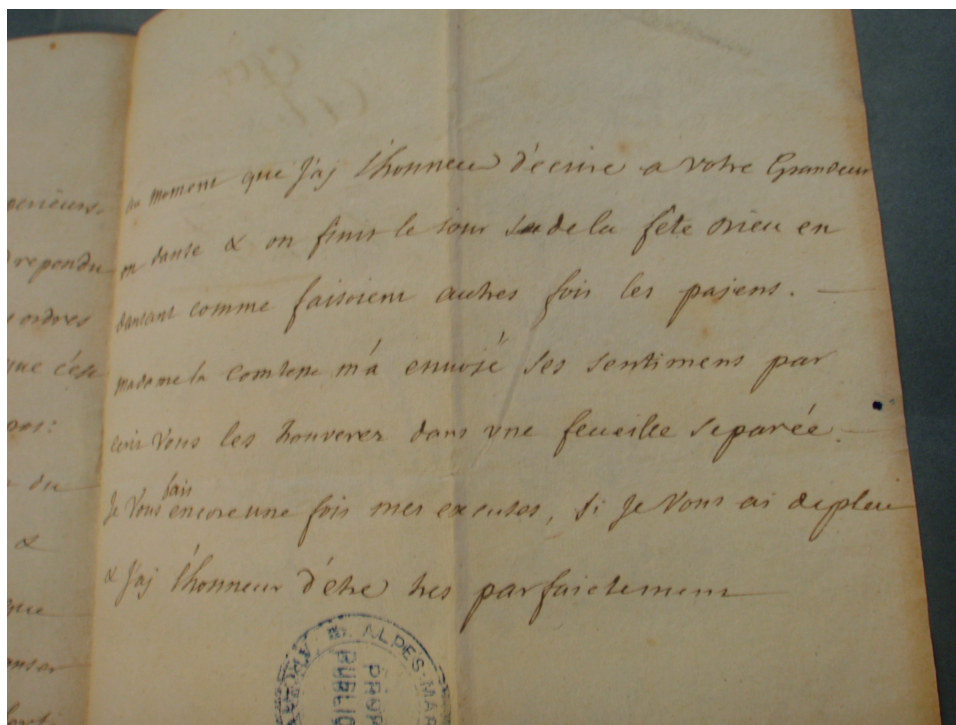 au moment que J'aj l'honneur d'ecrire a votre Grandeur
on danse & on finit le jour de la fête Dieu en
dansant comme faisoient autres fois les pajens.
Madame la comtesse m'a envoïé ses sentimens par
ecrit Vous les trouverez dans vne feueille separée.
Je Vous fais encore une fois mes excuses, si je Vous ai deplu
& J'aj l'honneur d'etre tres parfaictement
repondu
ordres
que c'est
du
&
que
ALPES-MAR
PROP
PUBLIQ